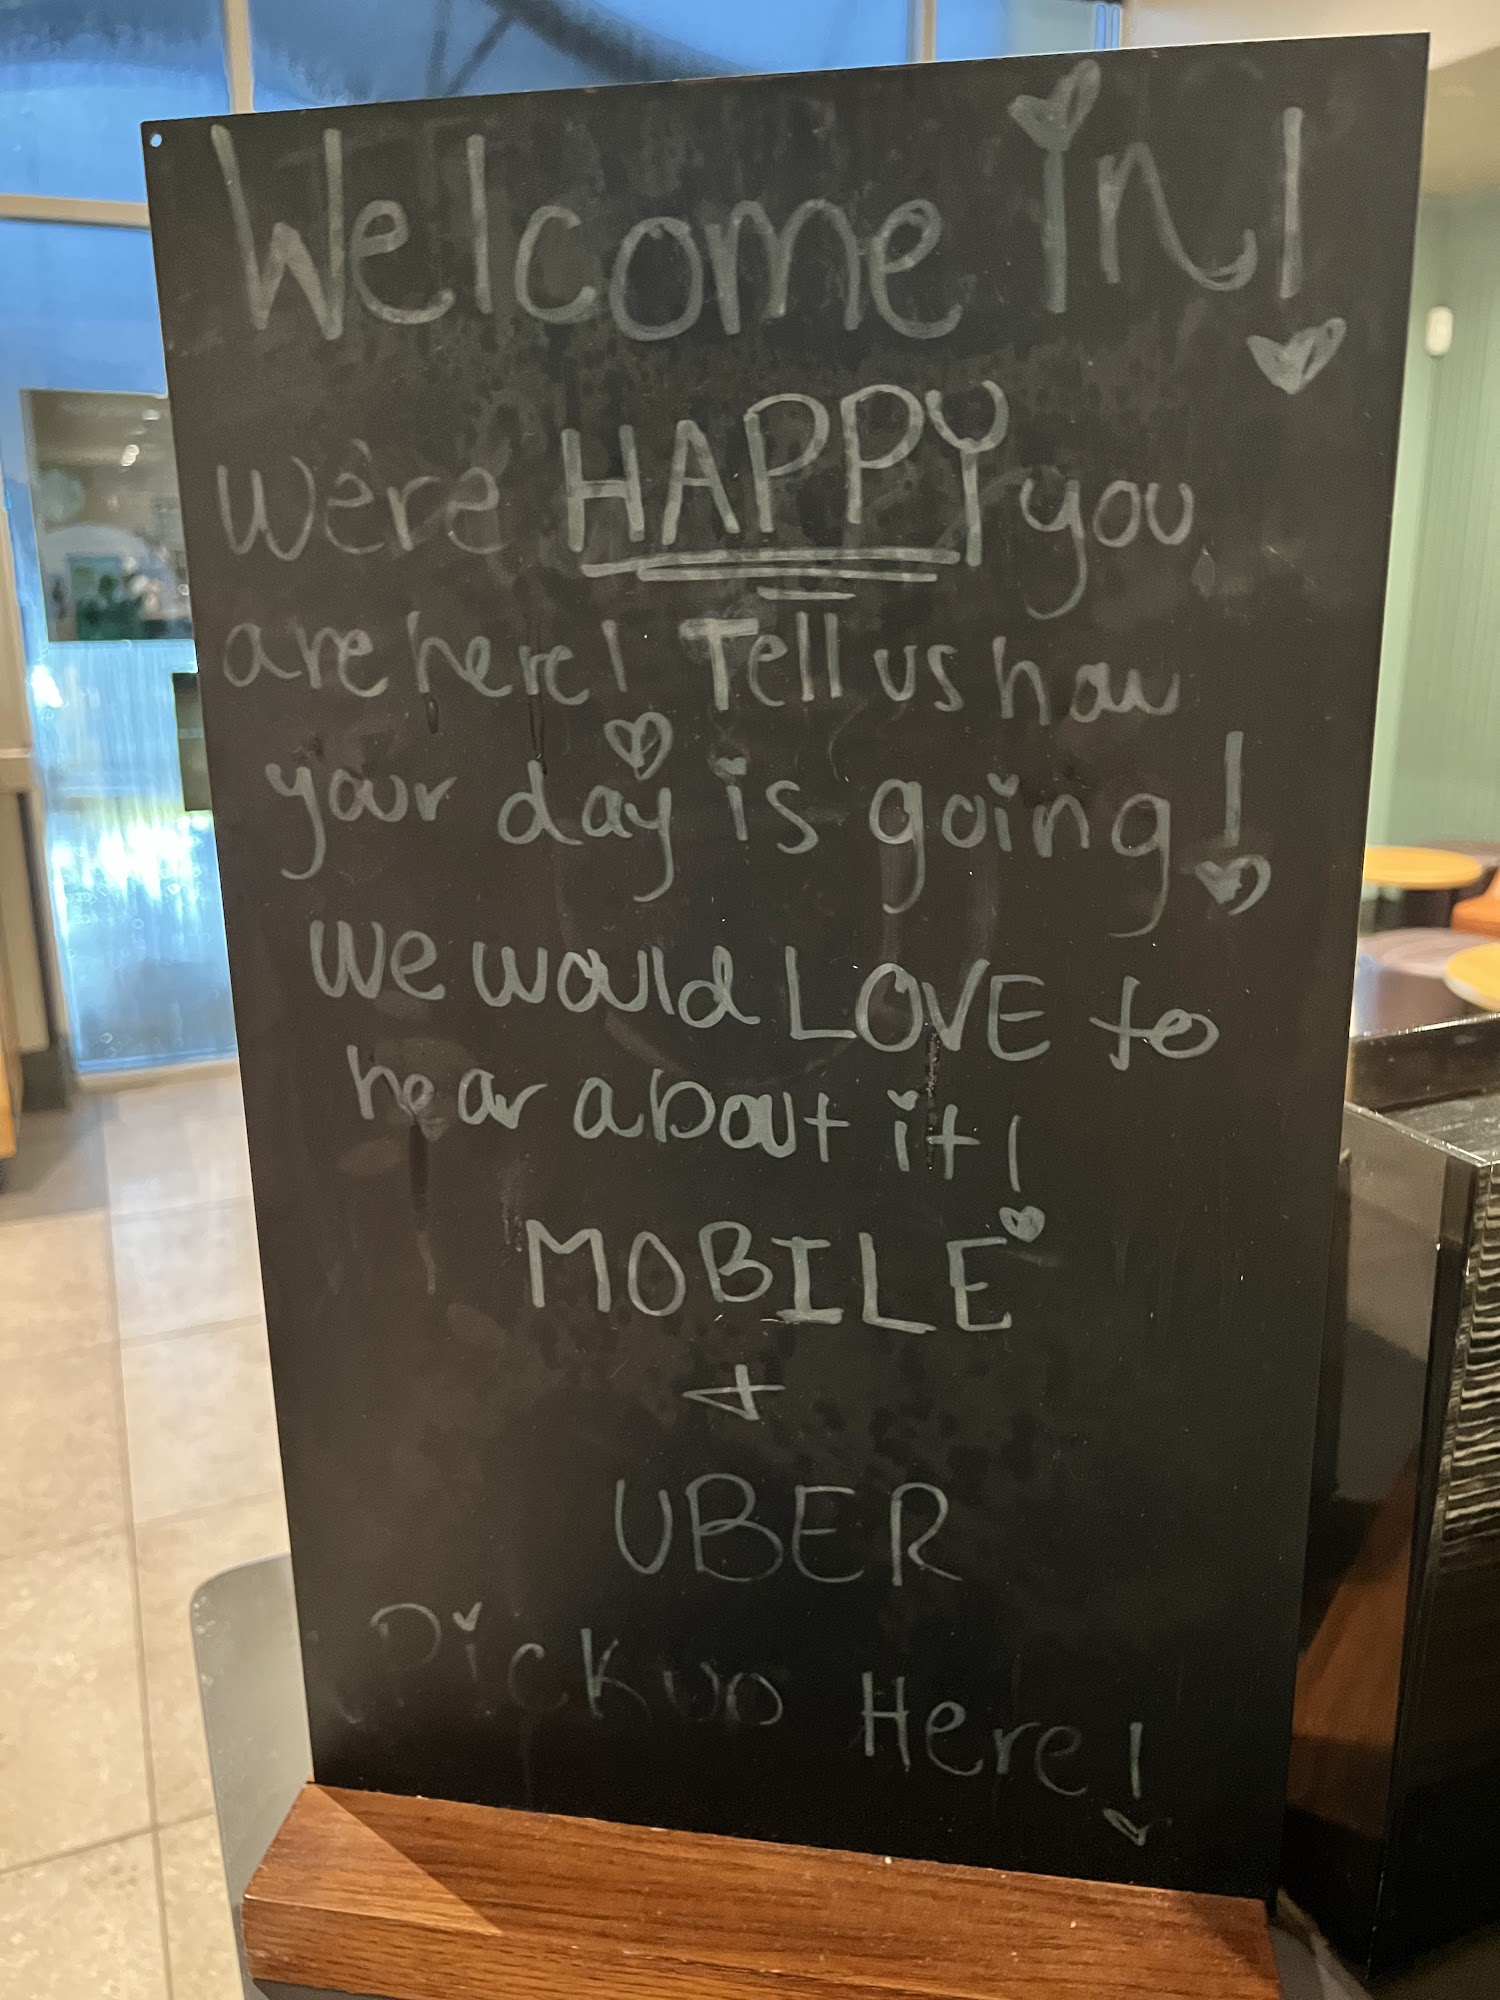 Welcome in!
We're HAPPY you
are here! Tell us how
your day is going!
We would LOVE to
hear about it!
MOBILE
+
UBER
Pickup Here!